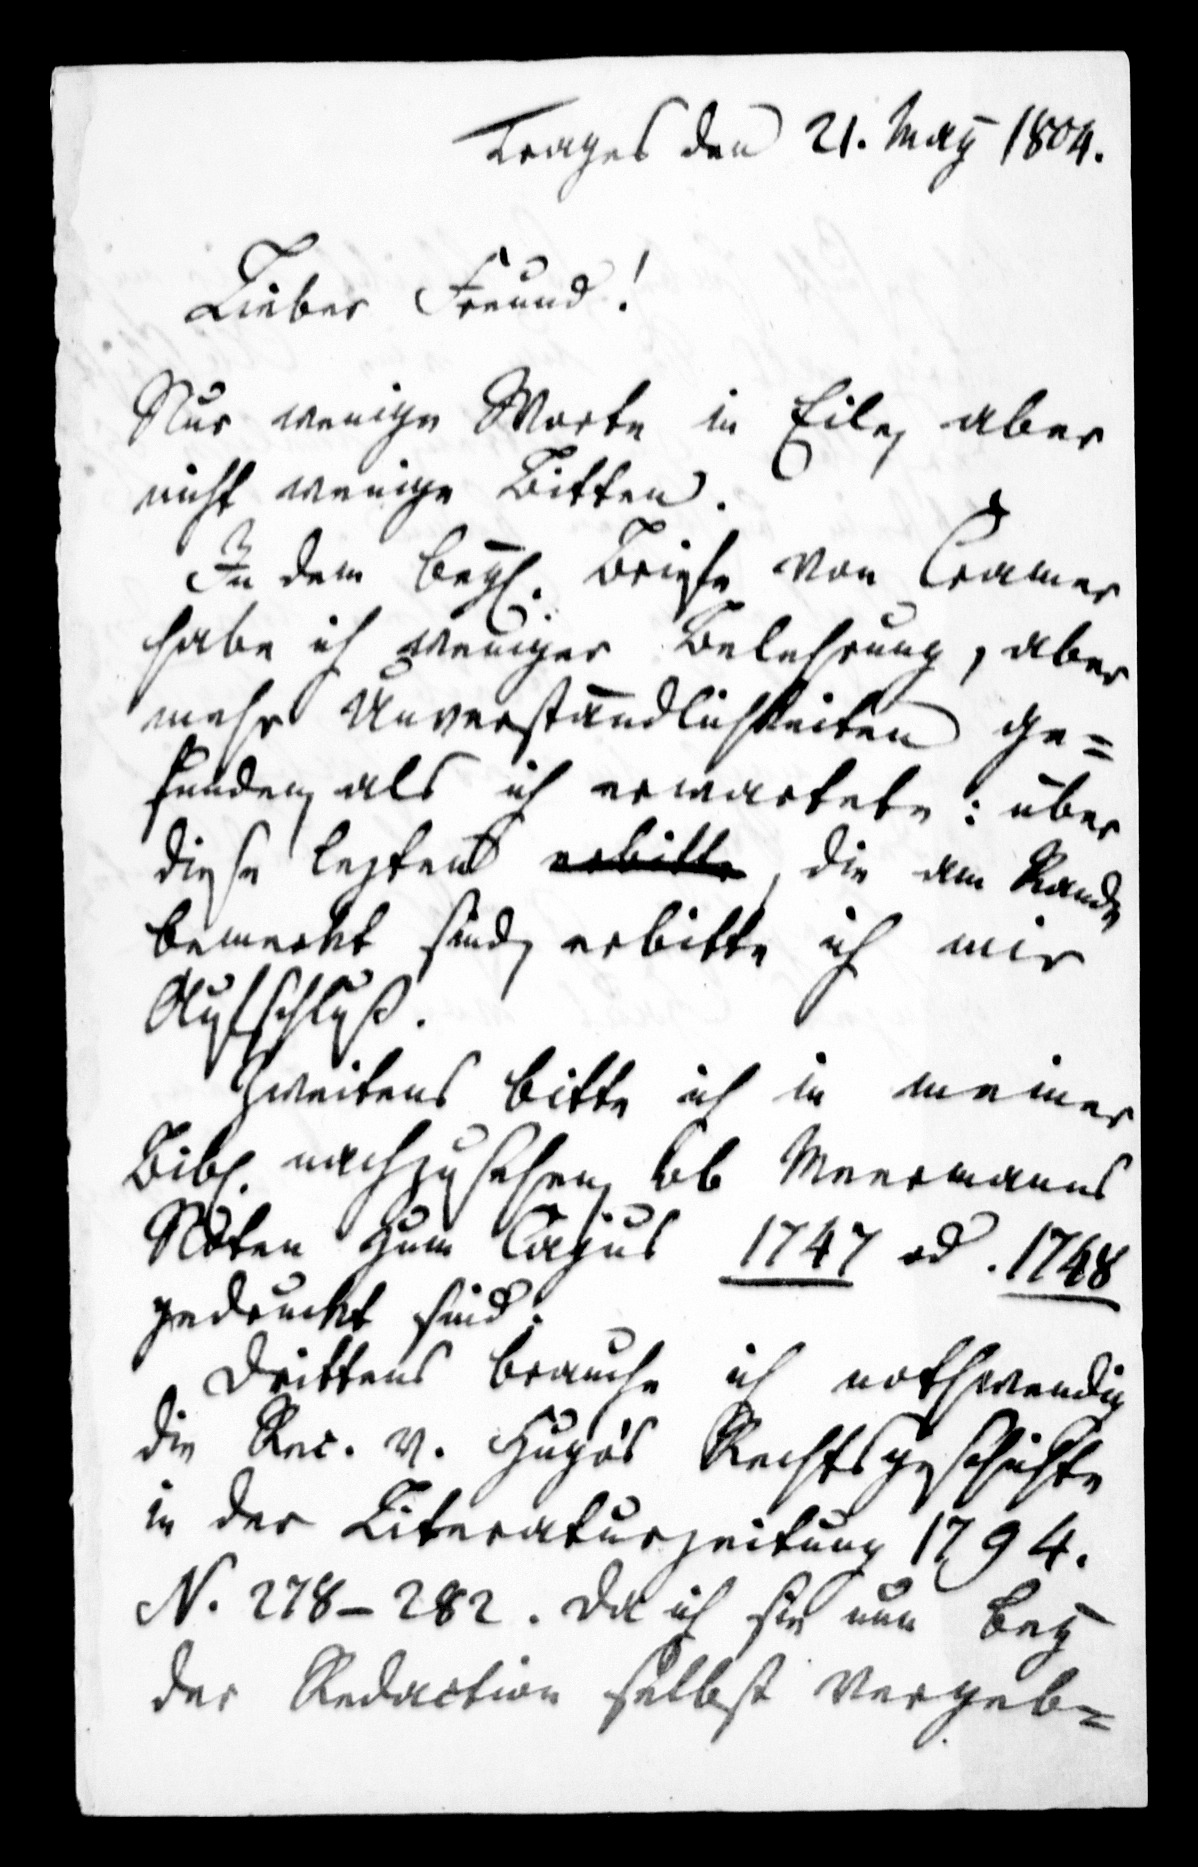 Trages den 21. May 1804.
Lieber Freund!
Nur wenige Worte in Eile, aber
nicht wenige Bitten.
In dem beyl. Briefe von Cramer
habe ich weniger Belehrung, aber
mehr Unverständlichkeiten ge=
funden, als ich erwartete: über
diese lezten erbitte, die am Rande
bemerkt sind, erbitte ich mir
Aufschluß.
Zweitens bitte ich in meiner
Bibl. nachzusehen, ob Meermanns
Noten zum Cajus 1747 od. 1748
gedruckt sind.
Drittens brauche ich nothwendig
die Rec. v. Hugo's Rechtsgeschichte
in der Literaturzeitung 1794.
N. 278–282. Da ich sie nun bey
der Redaction selbst vergeb=